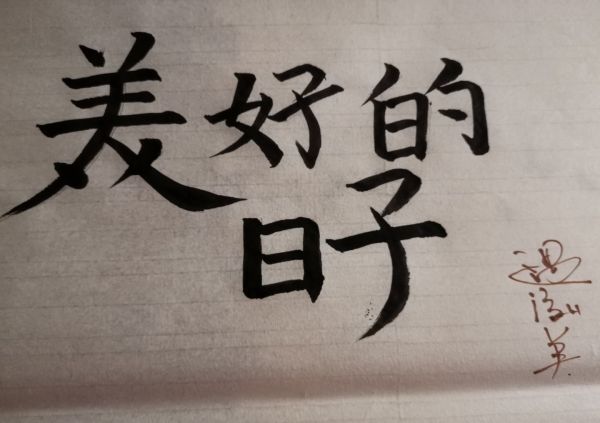 美好的
日子
英